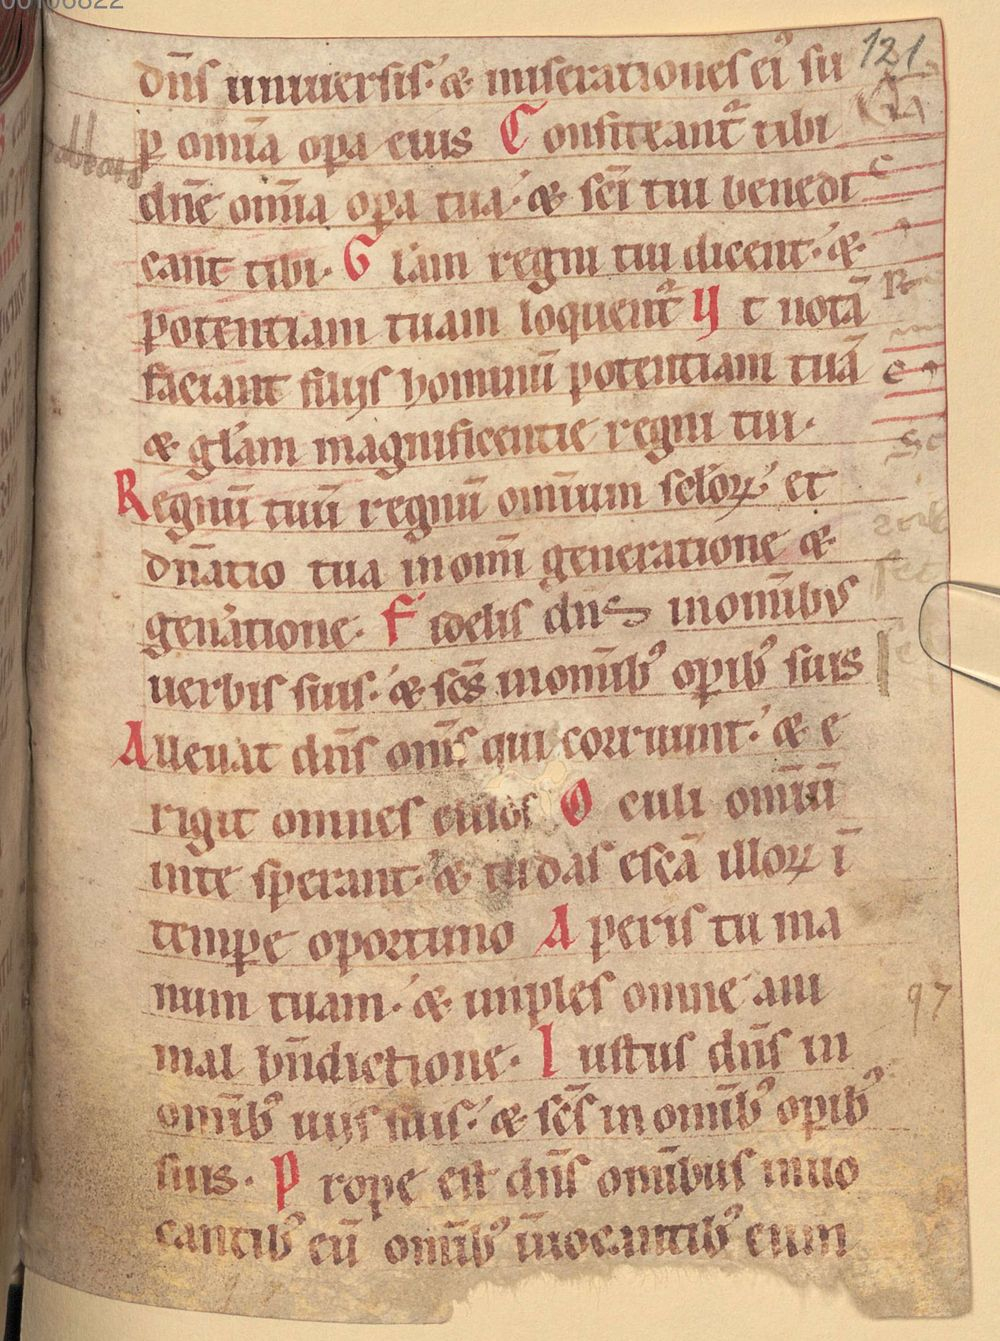 00106822
121
dn̄s uniuersis· & miserationes ei᾽ su
ꝑ om̄ia oꝑa eius Confiteant᷑ tibi
dn̄e om̄ia oꝑa tua· & sc̄i tui benedi
cant tibi· Gl̄am regni tui dicent· &
potentiam tuam loquent᷑ Ut notā
faciant filijs hominū potentiam tuā
& gl̄am magnificentie regni tui·
Regnū tuū regnū omnium sc̄loꝝ· et
dn̄atio tua in om̄i generatione &
gen̄atione· Fidelis dn̄s in om̄ibus
uerbis suis· & sc̄s in om̄ib᾽ oꝑib᾽ suis
Alleuat dn̄s om̄s qui corruunt· & e
rigit omnes elisos Oculi om̄iū
in te sperant· & tu das escā illoꝝ ī
temꝑe oportuno Aperis tu ma
num tuam· & imples omne ani
mal bn̄dictione· Iustus dn̄s in
om̄ib᾽ uijs suis· & sc̄s in om̄ib᾽ oꝑib᾽
suis· Prope est dn̄s om̄ibus inuo
cantib᾽ eū om̄ib᾽ īuocantib᾽ eum
97